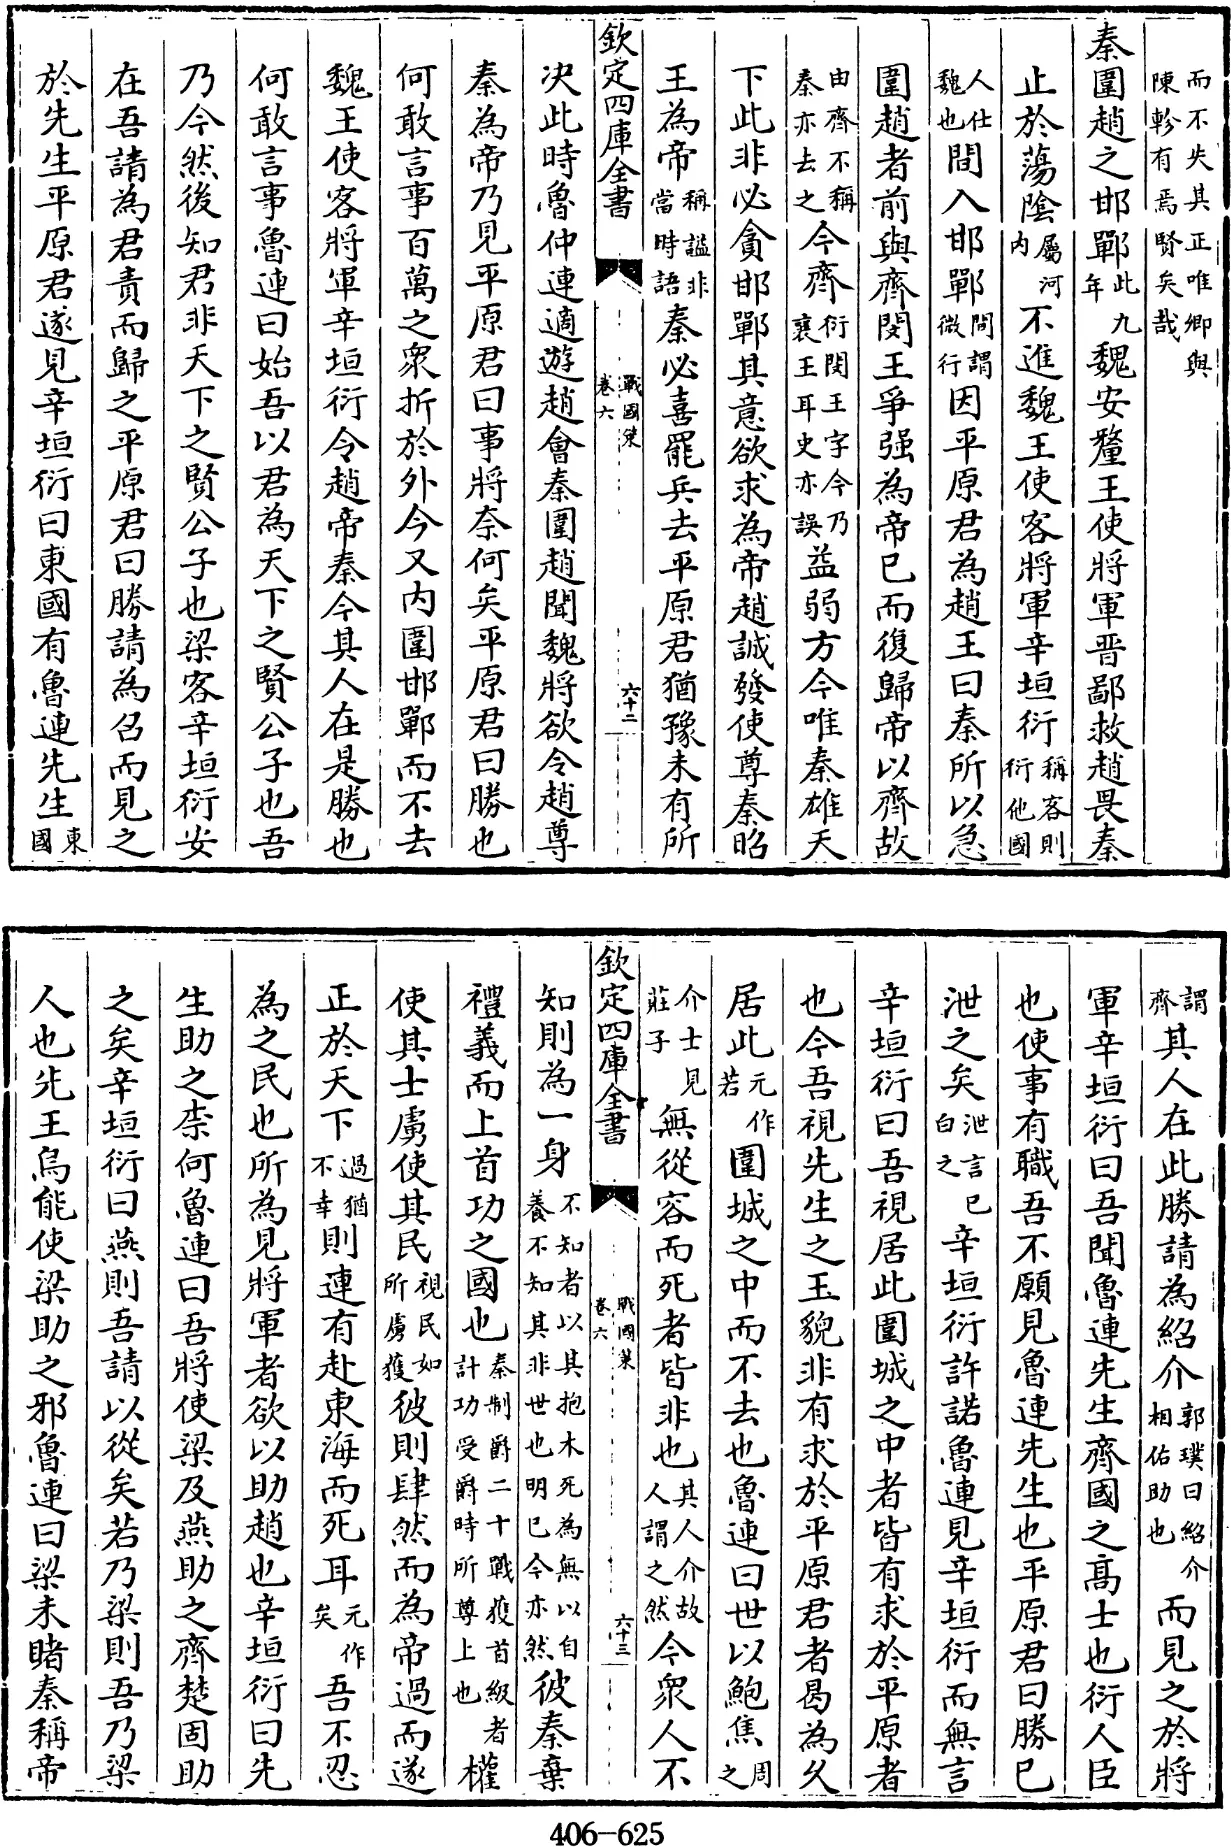 而不失其正唯卿與陳軫有焉賢矣哉
秦圍趙之邯鄲此九年魏安釐王使將軍晉鄙救趙畏秦
止於蕩陰屬河内不進魏王使客將軍辛垣衍稱客則衍他國
人仕魏也間入邯鄲間謂微行因平原君為趙王曰秦所以急
圍趙者前與齊閔王爭强為帝已而復歸帝以齊故
由齊不稱秦亦去之今齊衍閔王字今乃襄王耳史亦誤益弱方今唯秦雄天
下此非必貪邯鄲其意欲求為帝趙誠發使尊秦昭
王為帝稱謚非當時語秦必喜罷兵去平原君猶豫未有所
欽定四庫全書
戰國策
卷六
六十二
決此時魯仲連適遊趙會秦圍趙聞魏將欲令趙尊
秦為帝乃見平原君曰事將奈何矣平原君曰勝也
何敢言事百萬之衆折於外今又内圍邯鄲而不去
魏王使客將軍辛垣衍令趙帝秦今其人在是勝也
何敢言事魯連曰始吾以君為天下之賢公子也吾
乃今然後知君非天下之賢公子也梁客辛垣衍安
在吾請為君責而歸之平原君曰勝請為召而見之
於先生平原君遂見辛垣衍曰東國有魯連先生東國
謂齊其人在此勝請為紹介郭璞曰紹介相佑助也而見之於將
軍辛垣衍曰吾聞魯連先生齊國之髙士也衍人臣
也使事有職吾不願見魯連先生也平原君曰勝已
泄之矣泄言已白之辛垣衍許諾魯連見辛垣衍而無言
辛垣衍曰吾視居此圍城之中者皆有求於平原者
也今吾視先生之玉貌非有求於平原君者曷為久
居此元作若圍城之中而不去也魯連曰世以鮑焦周之
介士見莊子無從容而死者皆非也其人介故人謂之然今衆人不
欽定四庫全書
戰國策
卷六
六十三
知則為一身不知者以其抱木死為無以自養不知其非世也明已今亦然彼秦棄
禮義而上首功之國也秦制爵二十戰獲首級者計功受爵時所尊上也權
使其士虜使其民視民如所虜獲彼則肆然而為帝過而遂
正於天下過猶不幸則連有赴東海而死耳元作矣吾不忍
為之民也所為見將軍者欲以助趙也辛垣衍曰先
生助之柰何魯連曰吾將使梁及燕助之齊楚固助
之矣辛垣衍曰燕則吾請以從矣若乃梁則吾乃梁
人也先王烏能使梁助之邪魯連曰梁未睹秦稱帝
406—625